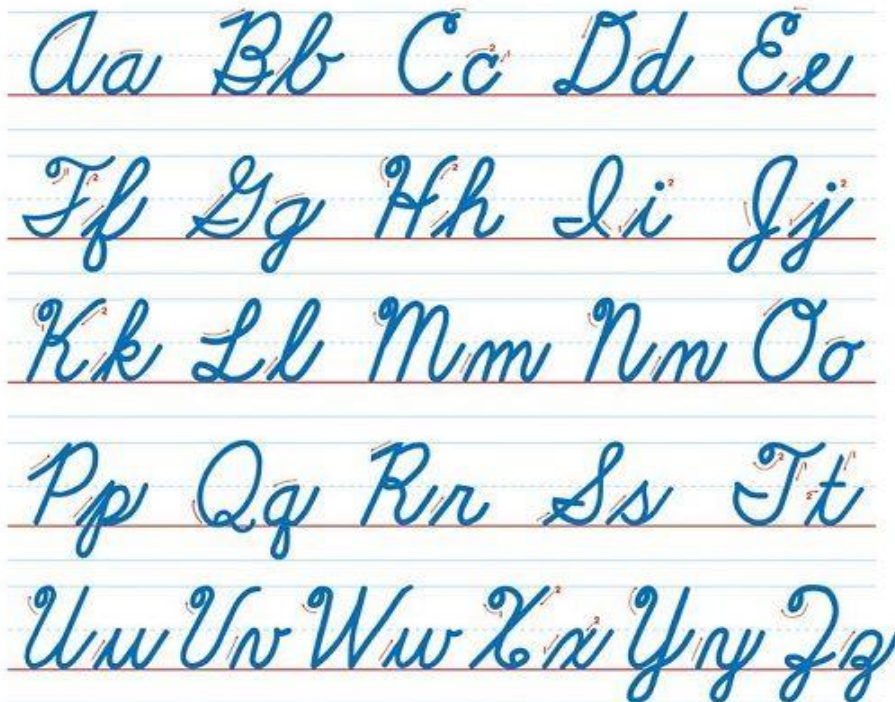 Aa Bb Cc Dd Ee
Ff Gg Hh Ii Jj
Kk Ll Mm Nn Oo
Pp Qq Rr Ss Tt
Uu Vv Ww Xx Yy Zz